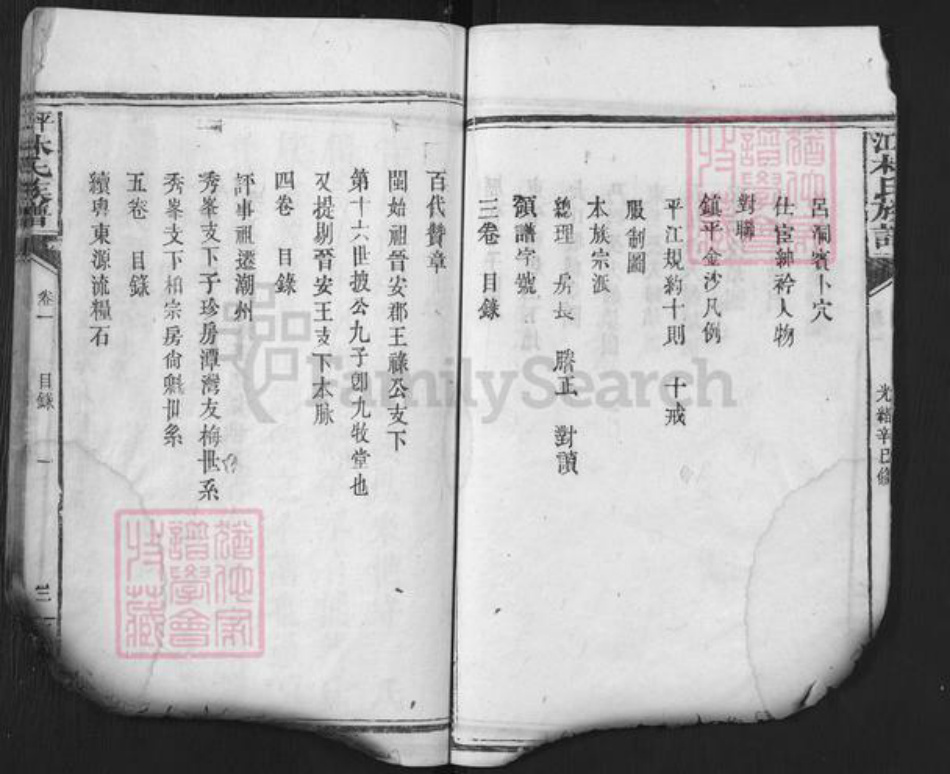 呂洞賓卜穴
仕宦紳衿人物
對聯
鎮平金沙凡例
平江規約十則 十戒
服制圖
本族宗派
總理 房長 謄正 對讀
領譜字號
三卷 目錄
百代贊章
閩始祖晉安郡王祿公支下
第十六世披公九子卽九牧堂也
又提剔晉安王支下本脉
四卷 目錄
評事祖遷潮州
秀峯支下子珍房潭灣友梅世系
秀峯支下柏宗房俞魁世系
五卷 目錄
續粵東源流糧石
江林氏族譜
光緒辛巳修
平 林氏族譜
卷一 目錄 一
FamilySearch
譜學會
收藏